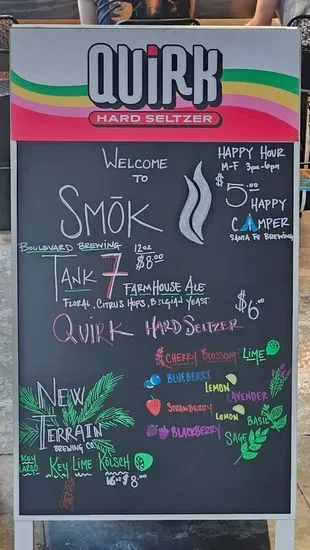 QUiRK
HARD SELTZER
WELCOME
TO
SMŌK
HAPPY HOUR
M-F 3pm-6pm
$5.00
HAPPY
CAMPER
SANTA FE BREWING
BOULEVARD BREWING 12oz
TANK 7 $8.00
FARMHOUSE ALE
FLORAL, CITRUS HOPS, BELGIAN YEAST
$6.00
QUIRK HARD SELTZER
CHERRY BLOSSOM LIME
BLUEBERRY
LEMON
LAVENDER
STRAWBERRY
LEMON BASIL
BLACKBERRY
SAGE
NEW
TERRAIN
BREWING CO.
KEY
LARGO KEY LIME KÖLSCH
16oz $8.00